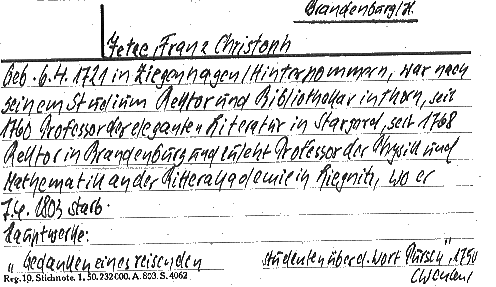 Brandenburg/H.
Jetze, Franz Christoph
Geb. 6.4. 1721 in Ziegenhagen/Hinterpommern, war nach
seinem Studium Rektor und Bibliothekar in Thorn, seit
1760 Professor der eleganten Literatur in Stargard, seit 1768
Rektor in Brandenburg und zuletzt Professor der Physik und
Mathematik an der Ritterakademie in Liegnitz, wo er
7.6. 1803 starb.
Hauptwerke:
"Gedanken eines reisenden Studenten über d. Wort Pursch", 1750
Reg. 10. Stichnote. 1, 50. 232000. A. 803. S. 4062